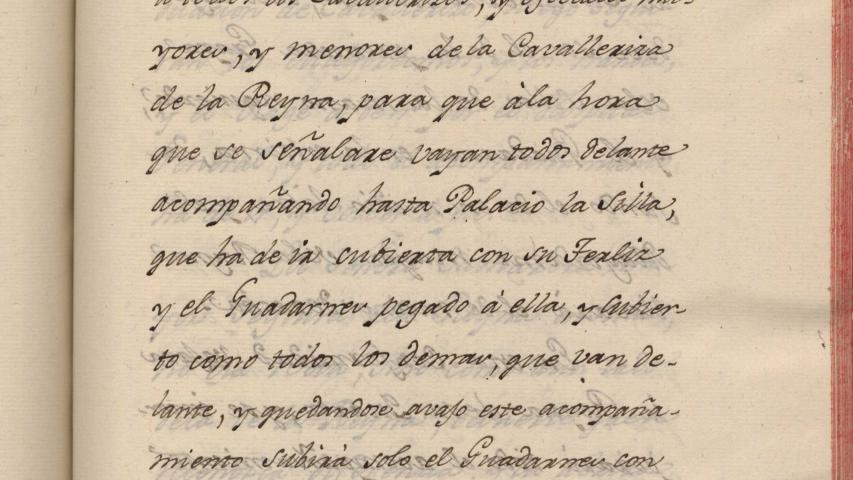 a todos los Cavallerizos, y oficiales ma-
yores, y menores de la Cavalleriza
de la Reyna, para que àla hora
que se señalare vayan todos delante
acompañando hasta Palacio la Silla,
que ha de ir cubierta con su Ferliz
y el Guadarnes pegado à ella, y Cubier-
to como todos los demas, que van de-
lante, y quedandose avajo este acompaña-
miento subirà solo el Guadarnes con